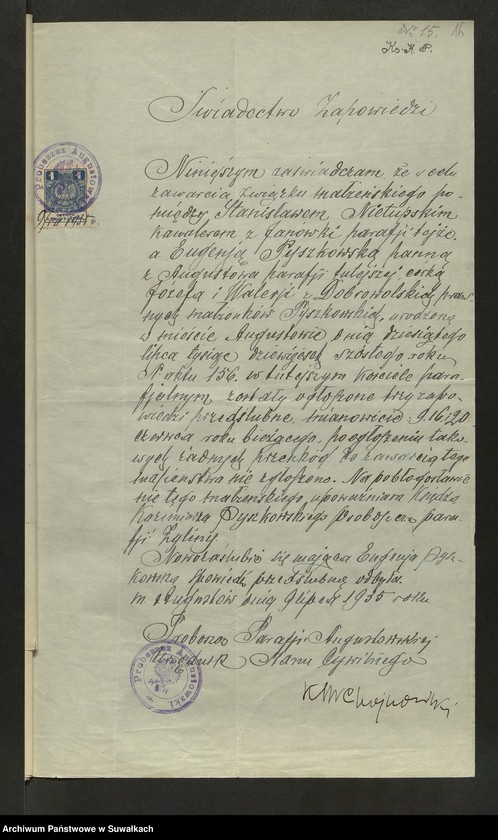 No 15. 16
Ks. K. P.
Świadectwo Zapowiedzi
Proboszcz Augustowski
1
Niniejszym zaświadczam, że w celu
zawarcia związku małżeńskiego po-
między Stanisławem
Kawalerem z Janówki parafji tejże
a Eugenją Pyszkowską panną
z Augustowa parafji tutejszej córką
Józefa i Walerji z Dobrowolskich praw-
nych małżonków Pyszkowskich, urodzoną
w mieście Augustowie dnia dziesiątego
lipca tysiąc dziewięćset szóstego roku
N aktu 156. w tutejszym Kościele para-
fjalnym zostały ogłoszone trzy zapo-
wiedzi przedślubne, mianowicie: 9. 16 i 20
czerwca roku bieżącego. po ogłoszeniu tako-
wych żadnych przeszkód do zawarcia tego
małżeństwa nie zgłoszono. Na pobłogosławie-
nie tego małżeńskiego, upoważniam Księdza
Kazimierza Pyszkowskiego Proboszcza para-
fji Żyliny.
Nowozaślubić się mająca Eugenja Pysz-
kowska spowiedź przedślubną odbyła.
m. Augustów dnia 9 lipca 1935 roku
Proboszcz Parafji Augustowskiej
Urzędnik Stanu Cywilnego
Proboszcz Augustowski
Archiwum Państwowe w Suwałkach